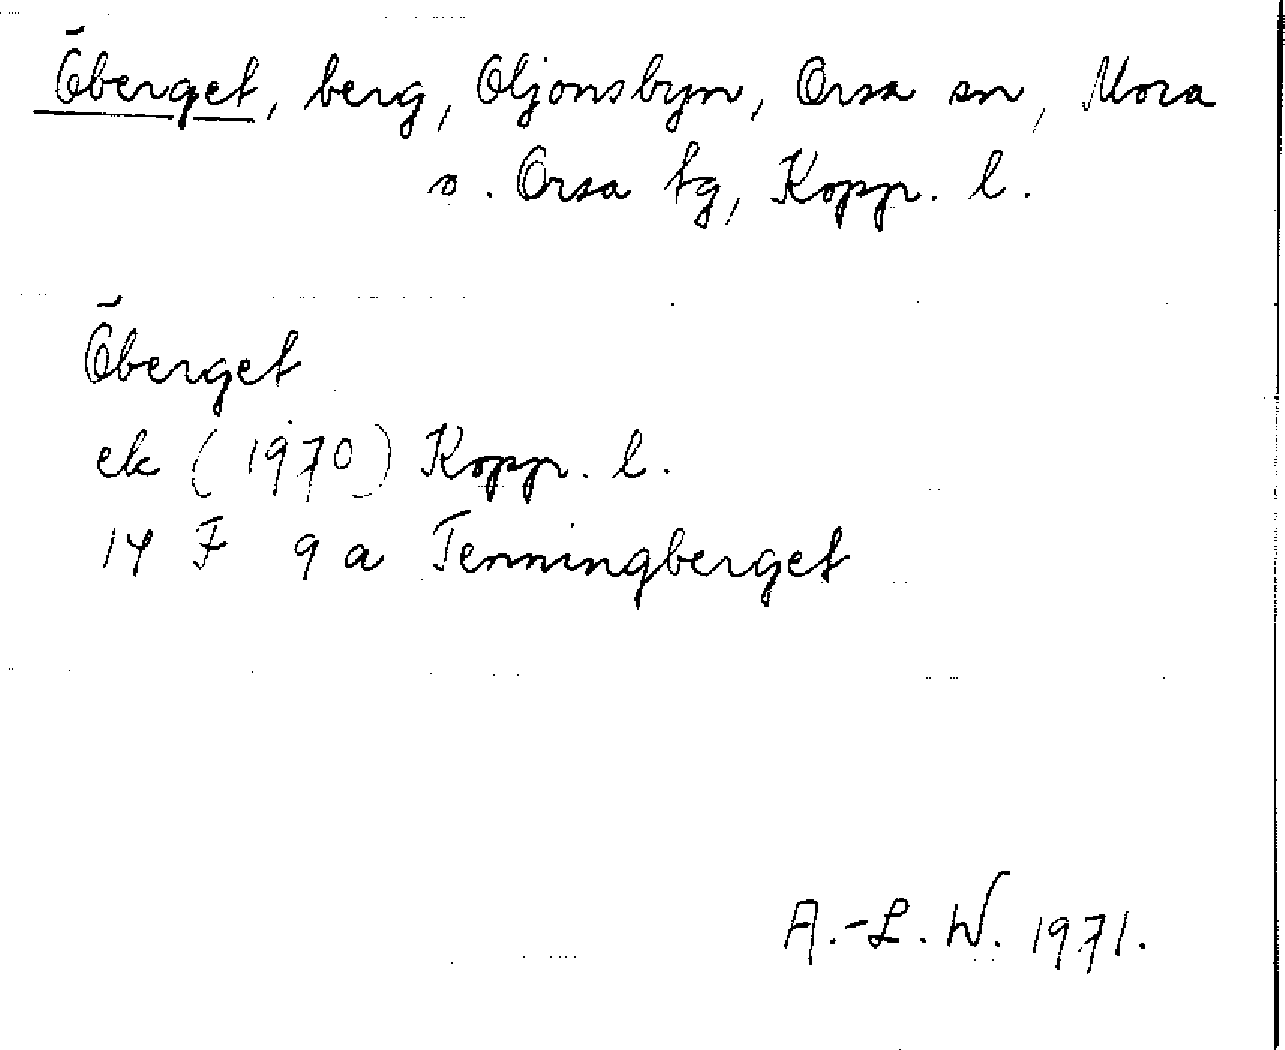 Öberget, berg, Oljonsbyn, Orsa sn, Mora
o. Orsa tg, Kopp. l.
Öberget
ek (1970) Kopp. l.
14 F 9 a Tenningberget
A.-L. W. 1971.